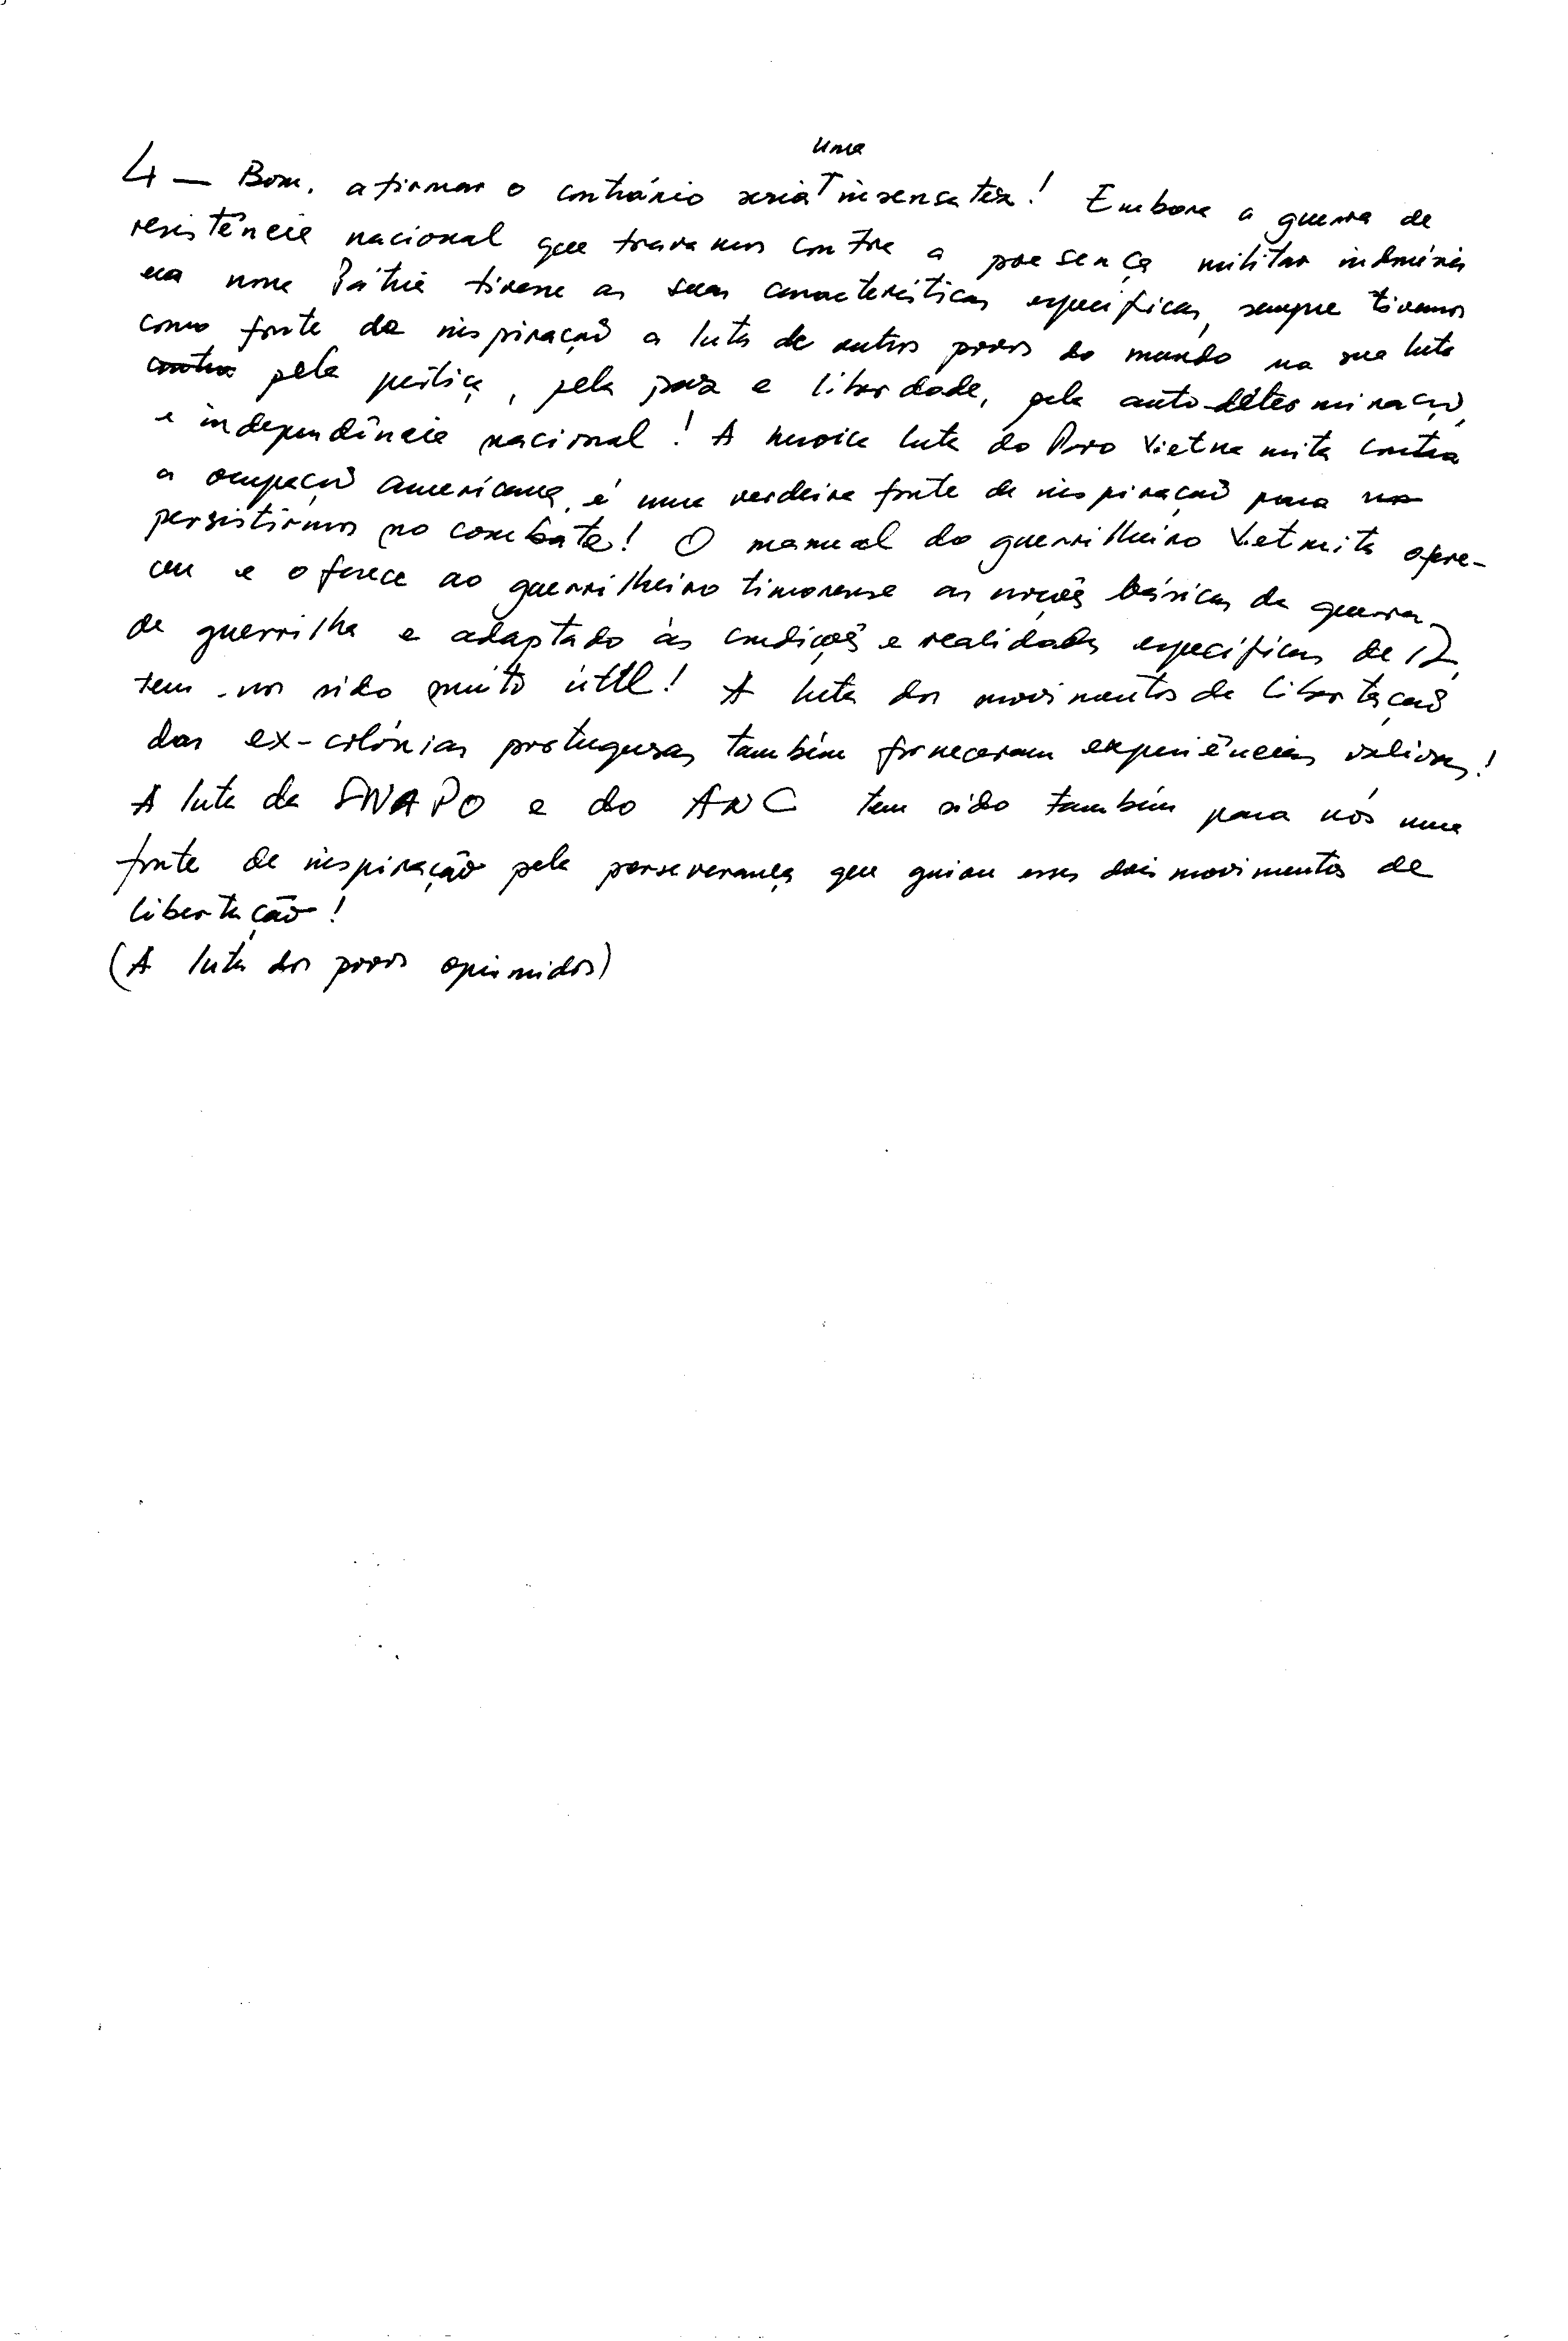 uma
4 — Bom, afirmar o contrário seria insensatez! Embora a guerra de
resistência nacional que travamos contra a presença militar indonésia
na nossa Pátria tivesse as suas características específicas, sempre tivemos
como fonte de inspiração a luta de outros povos do mundo na sua luta
contra pela justiça, pela paz e liberdade, pela auto-determinação
e independência nacional! A heroica luta do Povo Vietnamita contra
a ocupação americana, é uma verdeira fonte de inspiração para
persistirmos no combate! O manual do guerrilheiro Vietmita ofere-
ceu e oferece ao guerrilheiro timorense as noções básicas da guerra
de guerrilha e adaptado às condições e realidades específicas de
tem-nos sido muito útil! A luta dos movimentos de libertação
das ex-colónias portuguesas também forneceram experiências valiosas!
A luta da SWAPO e do ANC tem sido também para nós uma
fonte de inspiração pela perseverança que guiou esses dois movimentos de
libertação!
(A luta dos povos oprimidos)